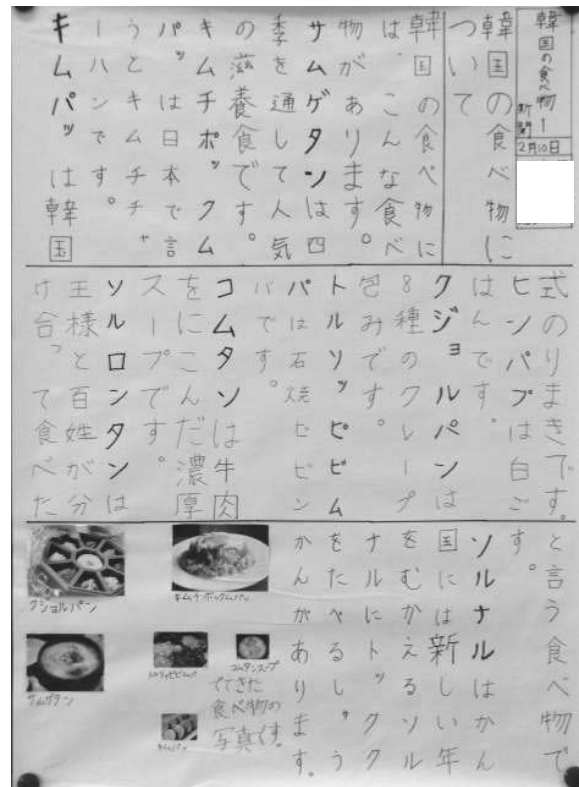 韓国の食べ物1
新聞
2月10日
韓国の食べ物に
ついて
韓国の食べ物に
は、こんな食べ
物があります。
サムゲタンは四
季を通して人気
の滋養食です。
キムチポックム
パッは日本で言
うとキムチチャ
ーハンです。
キムパッは韓国
式のりまきです。
ヒンパプは白ご
はんです。
クジョルパンは
8種のクレープ
包みです。
トルソッピビム
パは石焼ビビン
バです。
コムタンは牛肉
をにこんだ濃厚
スープです。
ソルロンタンは
王様と百姓が分
け合って食べた
と言う食べ物で
す。
ソルナルはかん
国には新しい年
をむかえるソル
ナルにトックク
をたべるしゅう
かんがあります。
キムチポックムパッ
クショルパン
コムタンスープ
サムゲタン
キムパッ
でてきた
食べ物の
写真です。